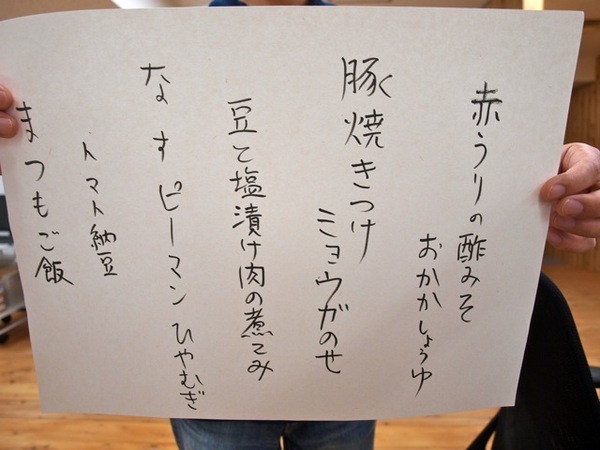 赤うりの酢みそ
おかかしょうゆ
豚焼きつけ
ミョウガのせ
豆と塩漬け肉の煮こみ
なすピーマンひやむぎ
トマト納豆
まつもご飯